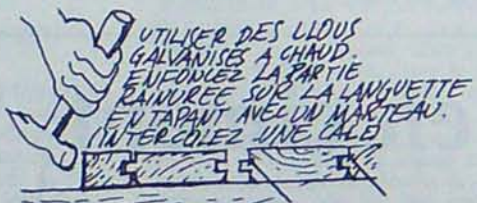 UTILISER DES CLOUS
GALVANISES A CHAUD.
ENFONCEZ LA PARTIE
RAINUREE SUR LA LANGUETTE
EN TAPANT AVEC UN MARTEAU.
(INTERCOLEZ UNE CALE)